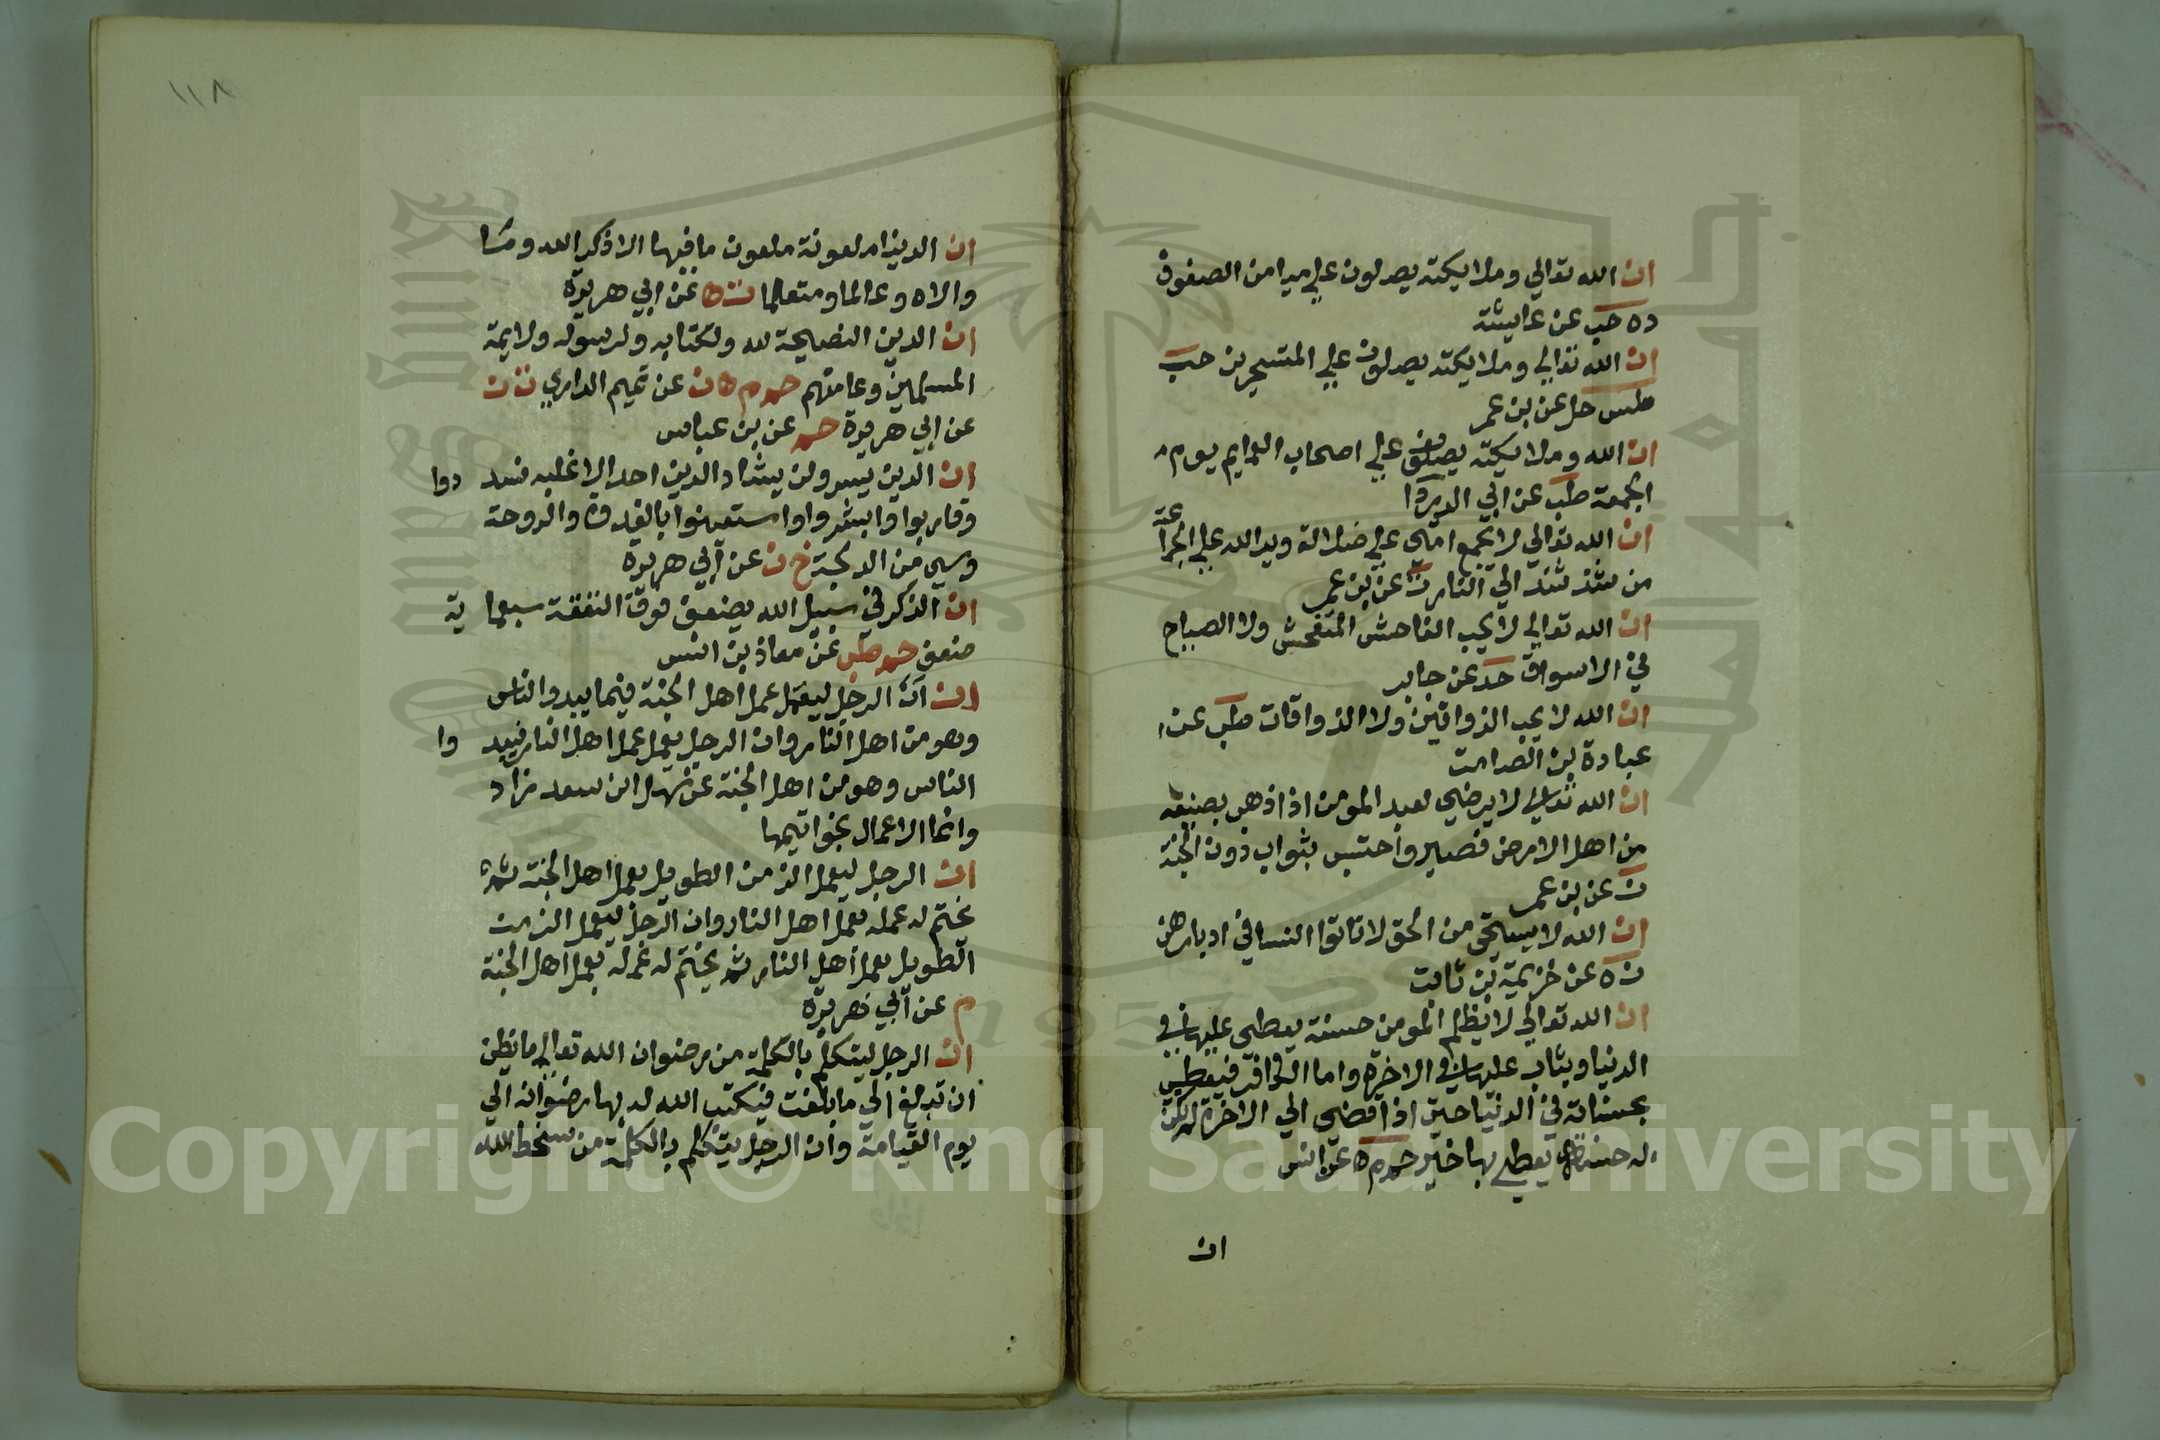 ان الله تعالي وملايكته يصلون علي ميامن الصفوف
ده حب عن عايشة
ان الله تعالي وملايكته يصلون علي المتسحرين حب
طس حل عن بن عمر
ان الله وملايكته يصلون علي اصحاب العمايم يوم
الجمعة طب عن ابي الدردا
ان الله تعالي لا يجمع امتي علي ضلالة ويد الله علي الجماعة
من شذ شذ الي النار ت عن بن عمر
ان الله تعالي لا يحب الفاحش المتفحش ولا الصياح
في الاسواق خد عن جابر
ان الله لا يحب الذواقين ولا الذواقات طب عن
عبادة بن الصامت
ان الله تعالي لا يرضي لعبد المومن اذا ذهب بصفيه
من اهل الارض فصبر واحتسب بثواب دون الجنة
ن عن بن عمر
ان الله لا يستحي من الحق لا تاتوا النسا في ادبارهن
ن ه عن خزيمة بن ثابت
ان الله تعالي لا يظلم المومن حسنة يعطي عليها في
الدنيا ويثاب عليها في الاخرة واما الكافر فيعطي
بحسناته في الدنيا حتي اذا افضي الي الاخرة لم يكن
له حسنة يعطي بها خير حم م عن انس
ان
١١٨
ان الدنيا ملعونة ملعون ما فيها الا ذكر الله وما
والاه وعالما ومتعلما ت ه عن ابي هريرة
ان الدين النصيحة لله ولكتابه ولرسوله ولايمة
المسلمين وعامتهم حم م د ن عن تميم الداري ت ن
عن ابي هريرة حم عن بن عباس
ان الدين يسر ولن يشاد الدين احد الا غلبه فسددوا
وقاربوا وابشروا واستعينوا بالغدوة والروحة
وشي من الدلجة خ ن عن ابي هريرة
ان الذكر في سبيل الله يضعف فوق النفقة سبعماية
ضعف حم طب عن معاذ بن انس
ان ان الرجل ليعمل عمل اهل الجنة فيما يبدو الناس
وهو من اهل النار وان الرجل يعمل عمل اهل النار فيبدوا
الناس وهو من اهل الجنة عن سهل ابن سعد زاد
وانما الاعمال بخواتيمها
ان الرجل ليعمل الزمن الطويل بعمل اهل الجنة ثم
يختم له عمله بعمل اهل النار وان الرجل ليعمل الزمن
الطويل بعمل اهل النار ثم يختم له عمله بعمل اهل الجنة
م عن ابي هريرة
ان الرجل ليتكلم بالكلمة من رضوان الله تعالي ما يظن
ان تبلغ الي ما بلغت فيكتب الله له بها رضوانه الي
يوم القيامة وان الرجل يتكلم بالكلمة من سخط الله
Copyright © King Saud University
1957